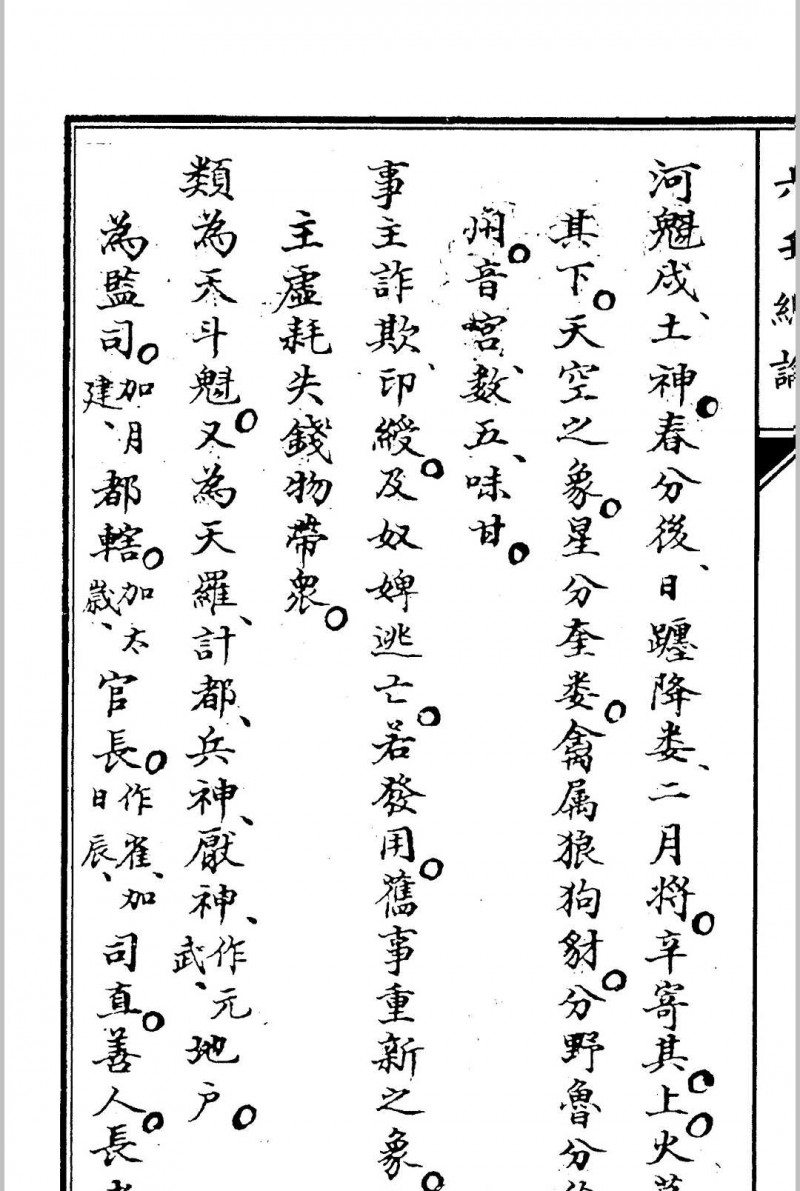 六壬總論
河魁戌、土神。春分後、日躔降婁、二月將。辛寄其。上。火墓
其下。天空之象。星分奎婁。禽属狼狗豺。分野魯分徐
州。音宮、数五、味甘。
事主詐欺、印綬。及奴婢逃亡。若發用。舊事重新之象。
主虛耗失錢物帶衆。
類為天斗魁。又為天羅、計都、兵神、厭神、作元武、地户。
為監司。加月建、都轄。加太歲、官長。作雀、加日辰、司直。善人。長